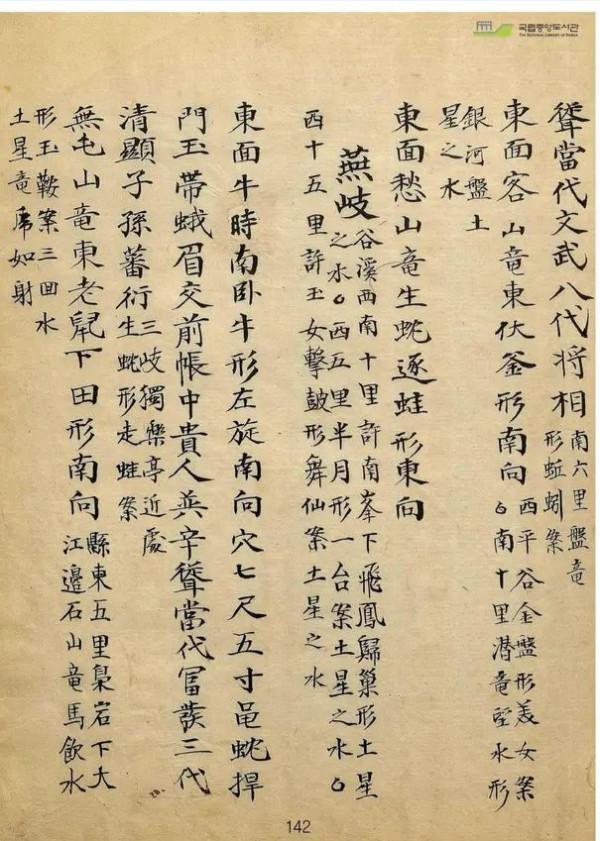 국립중앙도서관
THE NATIONAL LIBRARY OF KOREA
聳當代文武八代将相
南六里盤竜
形蚯蚓案
東面客山竜東伏釜形南向
西平谷金盤形美女案
○南十里潜竜水形
銀河盤土
星之水
東面愁山竜生蛇逐蛙形東向
燕歧
谷溪西南十里許南峯下飛鳳歸巢形土星
之水○西五里半月形一台案土星之水○
四十五里許玉女擊鼓形舞仙案土星之水
東面牛時南卧牛形左旋南向穴七尺五寸黽蛇捍
門玉帶蛾眉交前帳中貴人辛聳當代冨發三代
清顯子孫蕃衍
三歧獨樂亭近處
生蛇形走蛙案
無屯山竜東老鼠下田形南向
縣東五里梟岩下大
江邊石山竜馬飲水
形玉鞍案三回水
土星竜虎如射
142